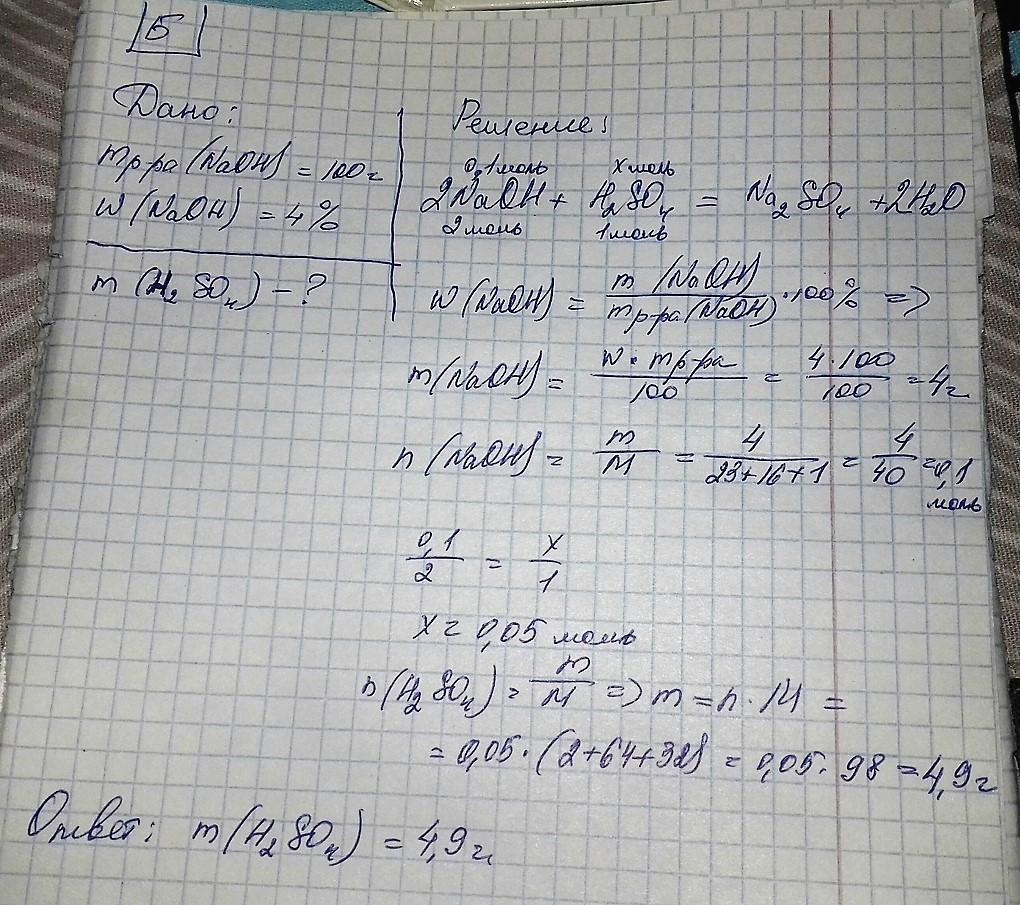 5
Дано:
mр-ра (NaOH) = 100г
W (NaOH) = 4%
m (H₂SO₄) - ?
Решение:
0,1 моль x моль
2NaOH + H₂SO₄ = Na₂SO₄ + 2H₂O
2 моль 1 моль
W (NaOH) = m (NaOH) / mр-ра (NaOH) · 100% =>
m (NaOH) = W · mр-ра / 100 = 4 · 100 / 100 = 4г
n (NaOH) = m / M = 4 / 23+16+1 = 4 / 40 = 0,1 моль
0,1 / 2 = x / 1
x = 0,05 моль
n (H₂SO₄) = m / M => m = n · M =
= 0,05 · (2+64+32) = 0,05 · 98 = 4,9г
Ответ: m (H₂SO₄) = 4,9г.